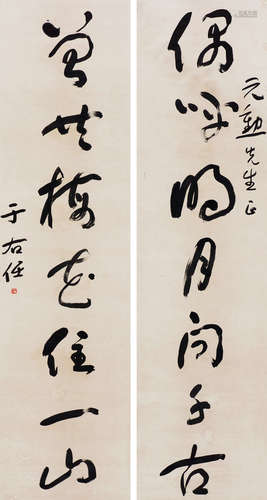 元勲先生正
偶呼明月問千古
曾共梅花住一山
于右任